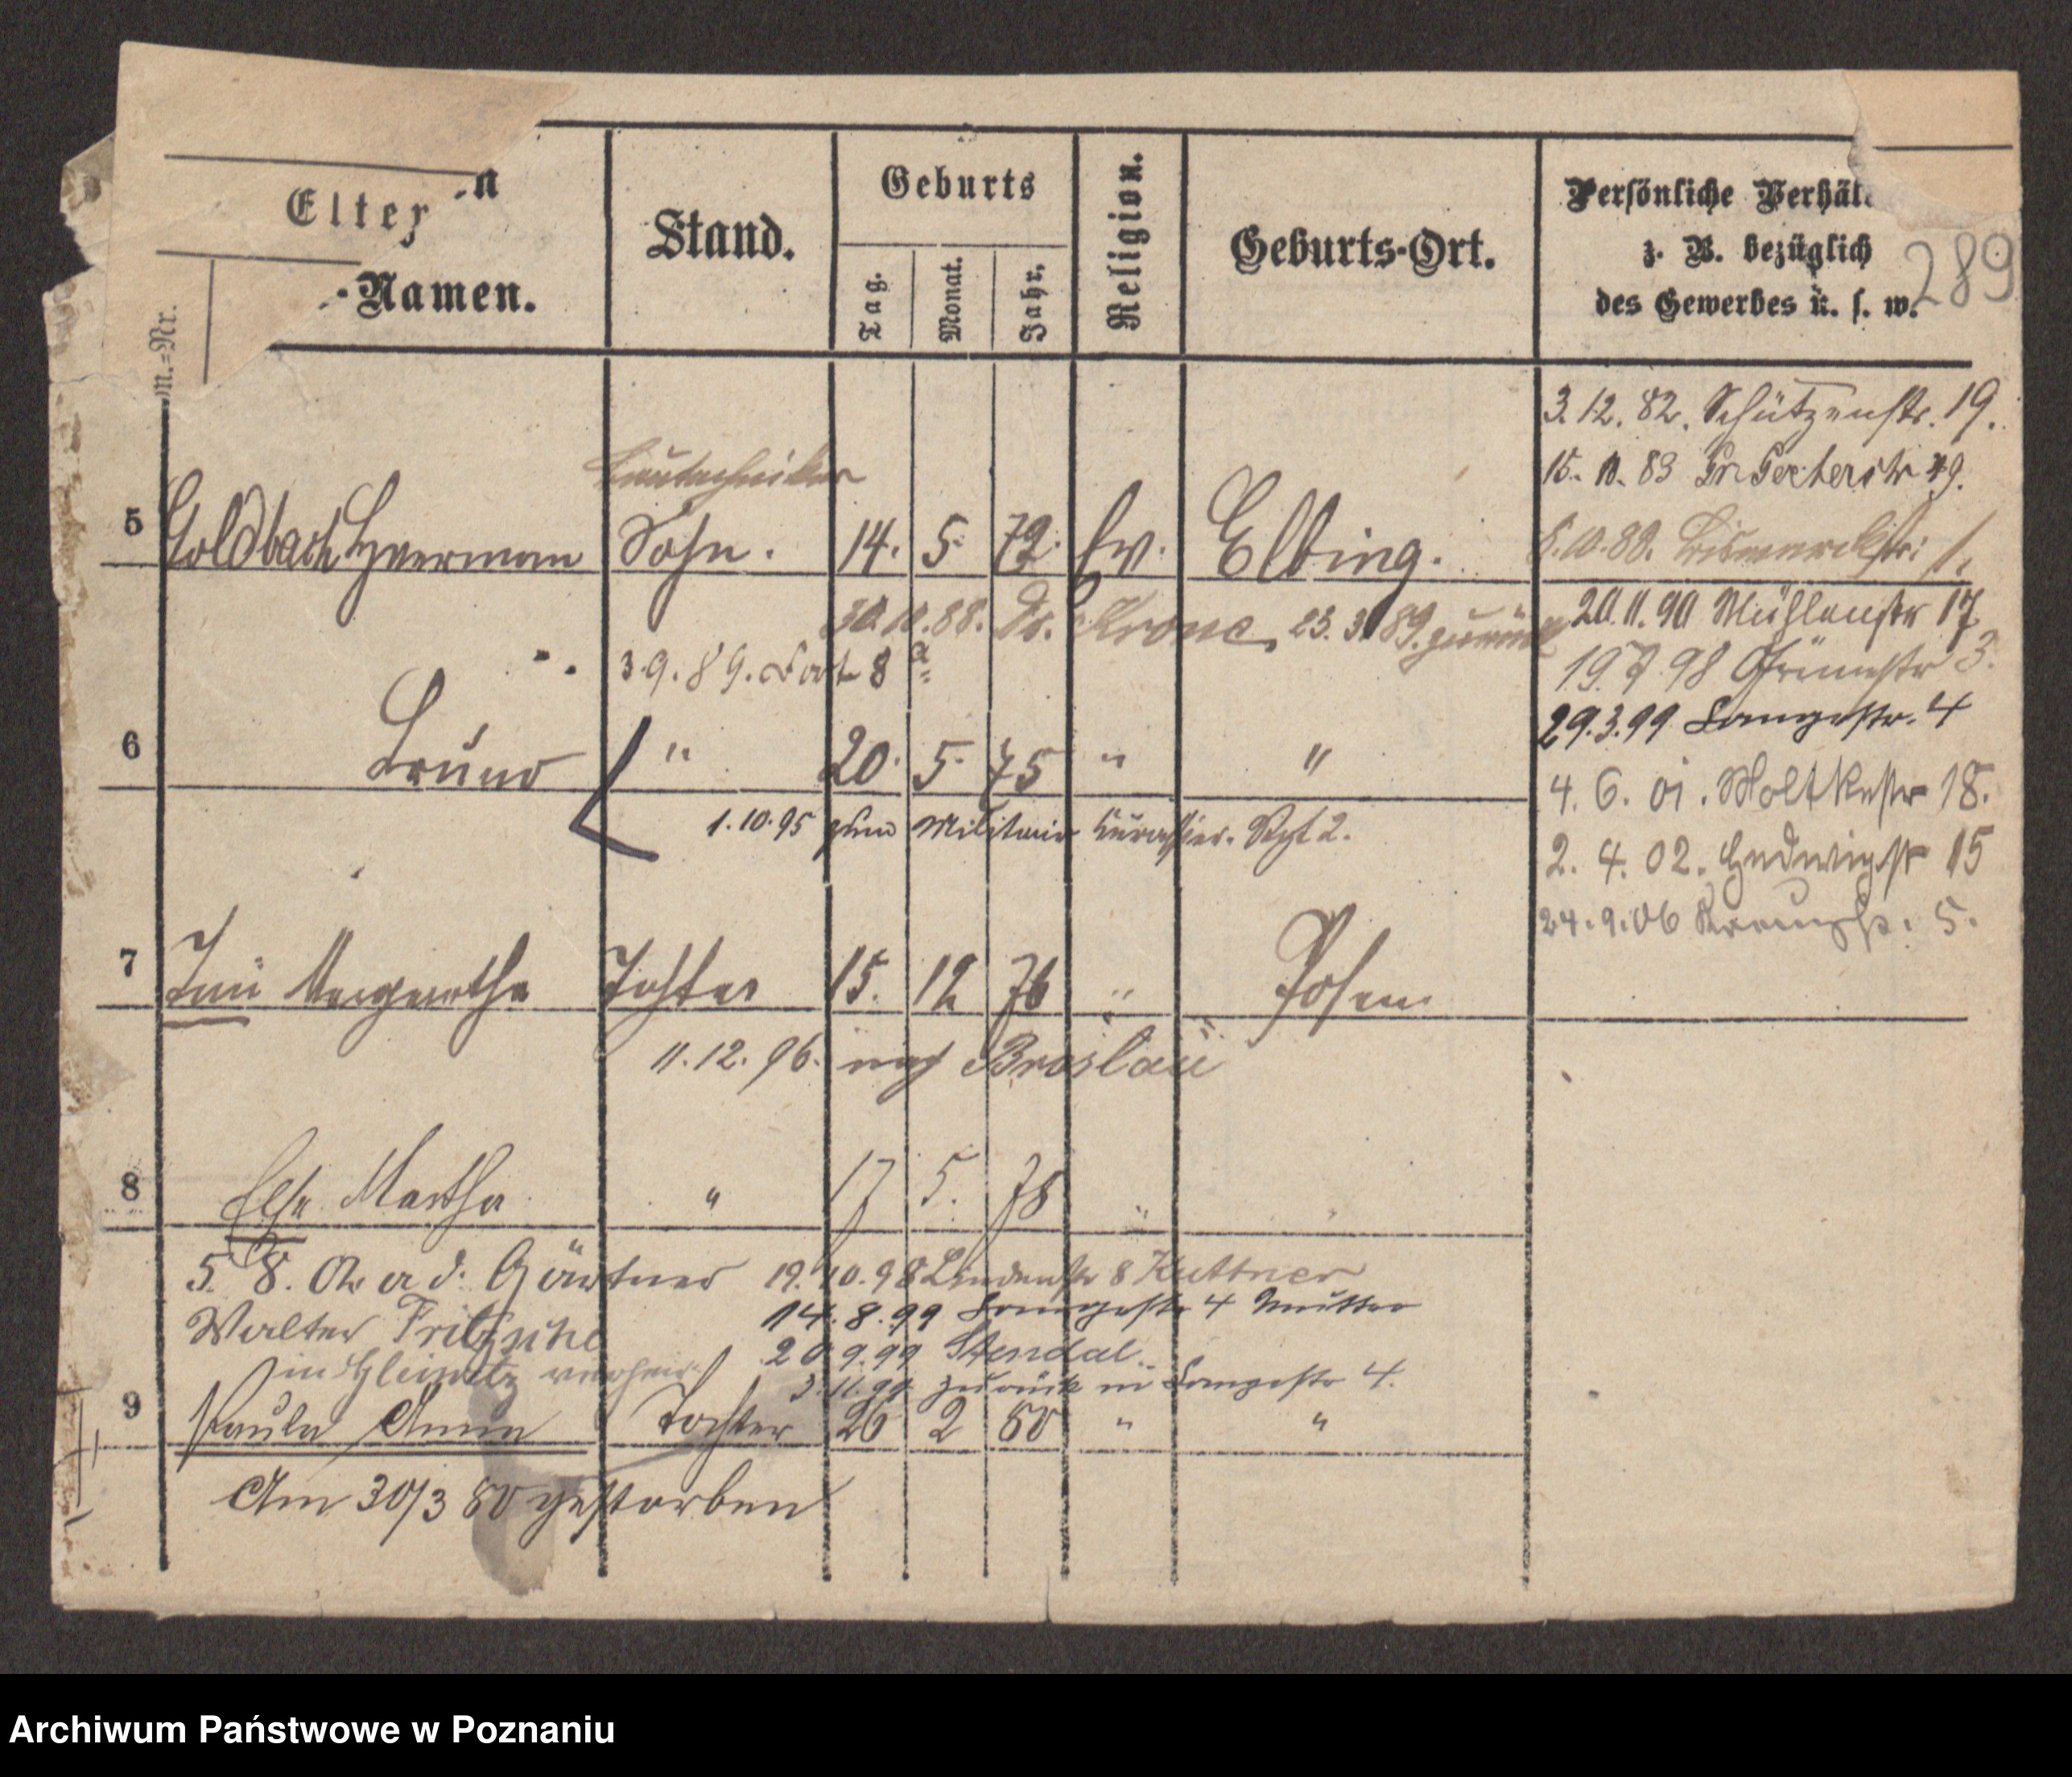 Elter
n
-Namen.
m.=Nr.
Stand.
Geburts
Tag.
Monat.
Jahr.
Religion.
Geburts-Ort.
Persönliche Verhäl
z. B. bezüglich
des Gewerbes u. s. w.
289
3.12.82. Schützenstr. 19.
15. 83
Bautechniker
5 Goldbach Herrman Sohn. 14. 5. 72. Ev. Elbing.
6.10.88. Bismarckstr: 1.
30.10.88. Dt. Krone, 23.3.89. zurück
20.11.90 Mühlenstr 17
3.9.89. Fort 8a
19.7.98 Grünestr 3.
29.3.99 Langestr. 4
6 Bruno " 20. 5. 75 " "
4. 6. 01. Moltkestr 18.
1.10.95 zum Militair Kürassier. Rgt 2.
2. 4. 02. Hedwigstr 15
24.9.06 5.
7 Margarethe Tochter 15. 12 76 " Posen
11.12.96. nach Breslau
8 Else Martha " 17 5. 78 " "
5. 8. 02 a. d. Gärtner
19.10.98 Lindenstr 8 Kuttner
Walter Fritzsche
14.8.99 Langestr 4 Mutter
in verheir.
20.9.99 Stendal.
3.11.99 zurück in Langestr 4.
9 Paula Anna Tochter 26 2 80 " "
Am 30/3 80 gestorben
Archiwum Państwowe w Poznaniu